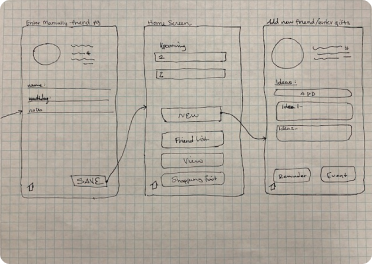 Enter Memory friend
name:
notes
SAVE
Home Screen
Upcoming
1.
2.
NEW
Friend List
View
Shopping List
Add new friend/enter gifts
Ideas:
ADD
Idea 1-
Idea 2-
Reminder
Event